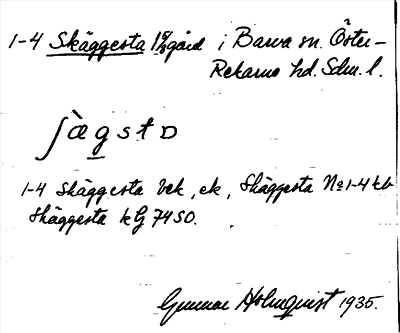 1-4 Skäggesta 1 5/8 gård i Barva sn. Öster-
Rekarne hd. Sdm. l.
ʃæ̀gstɒ
1-4 Skäggesta bek, ek, Skäggesta No 1-4 kb
Skäggesta kG 7450.
Gunnar Holmquist 1935.